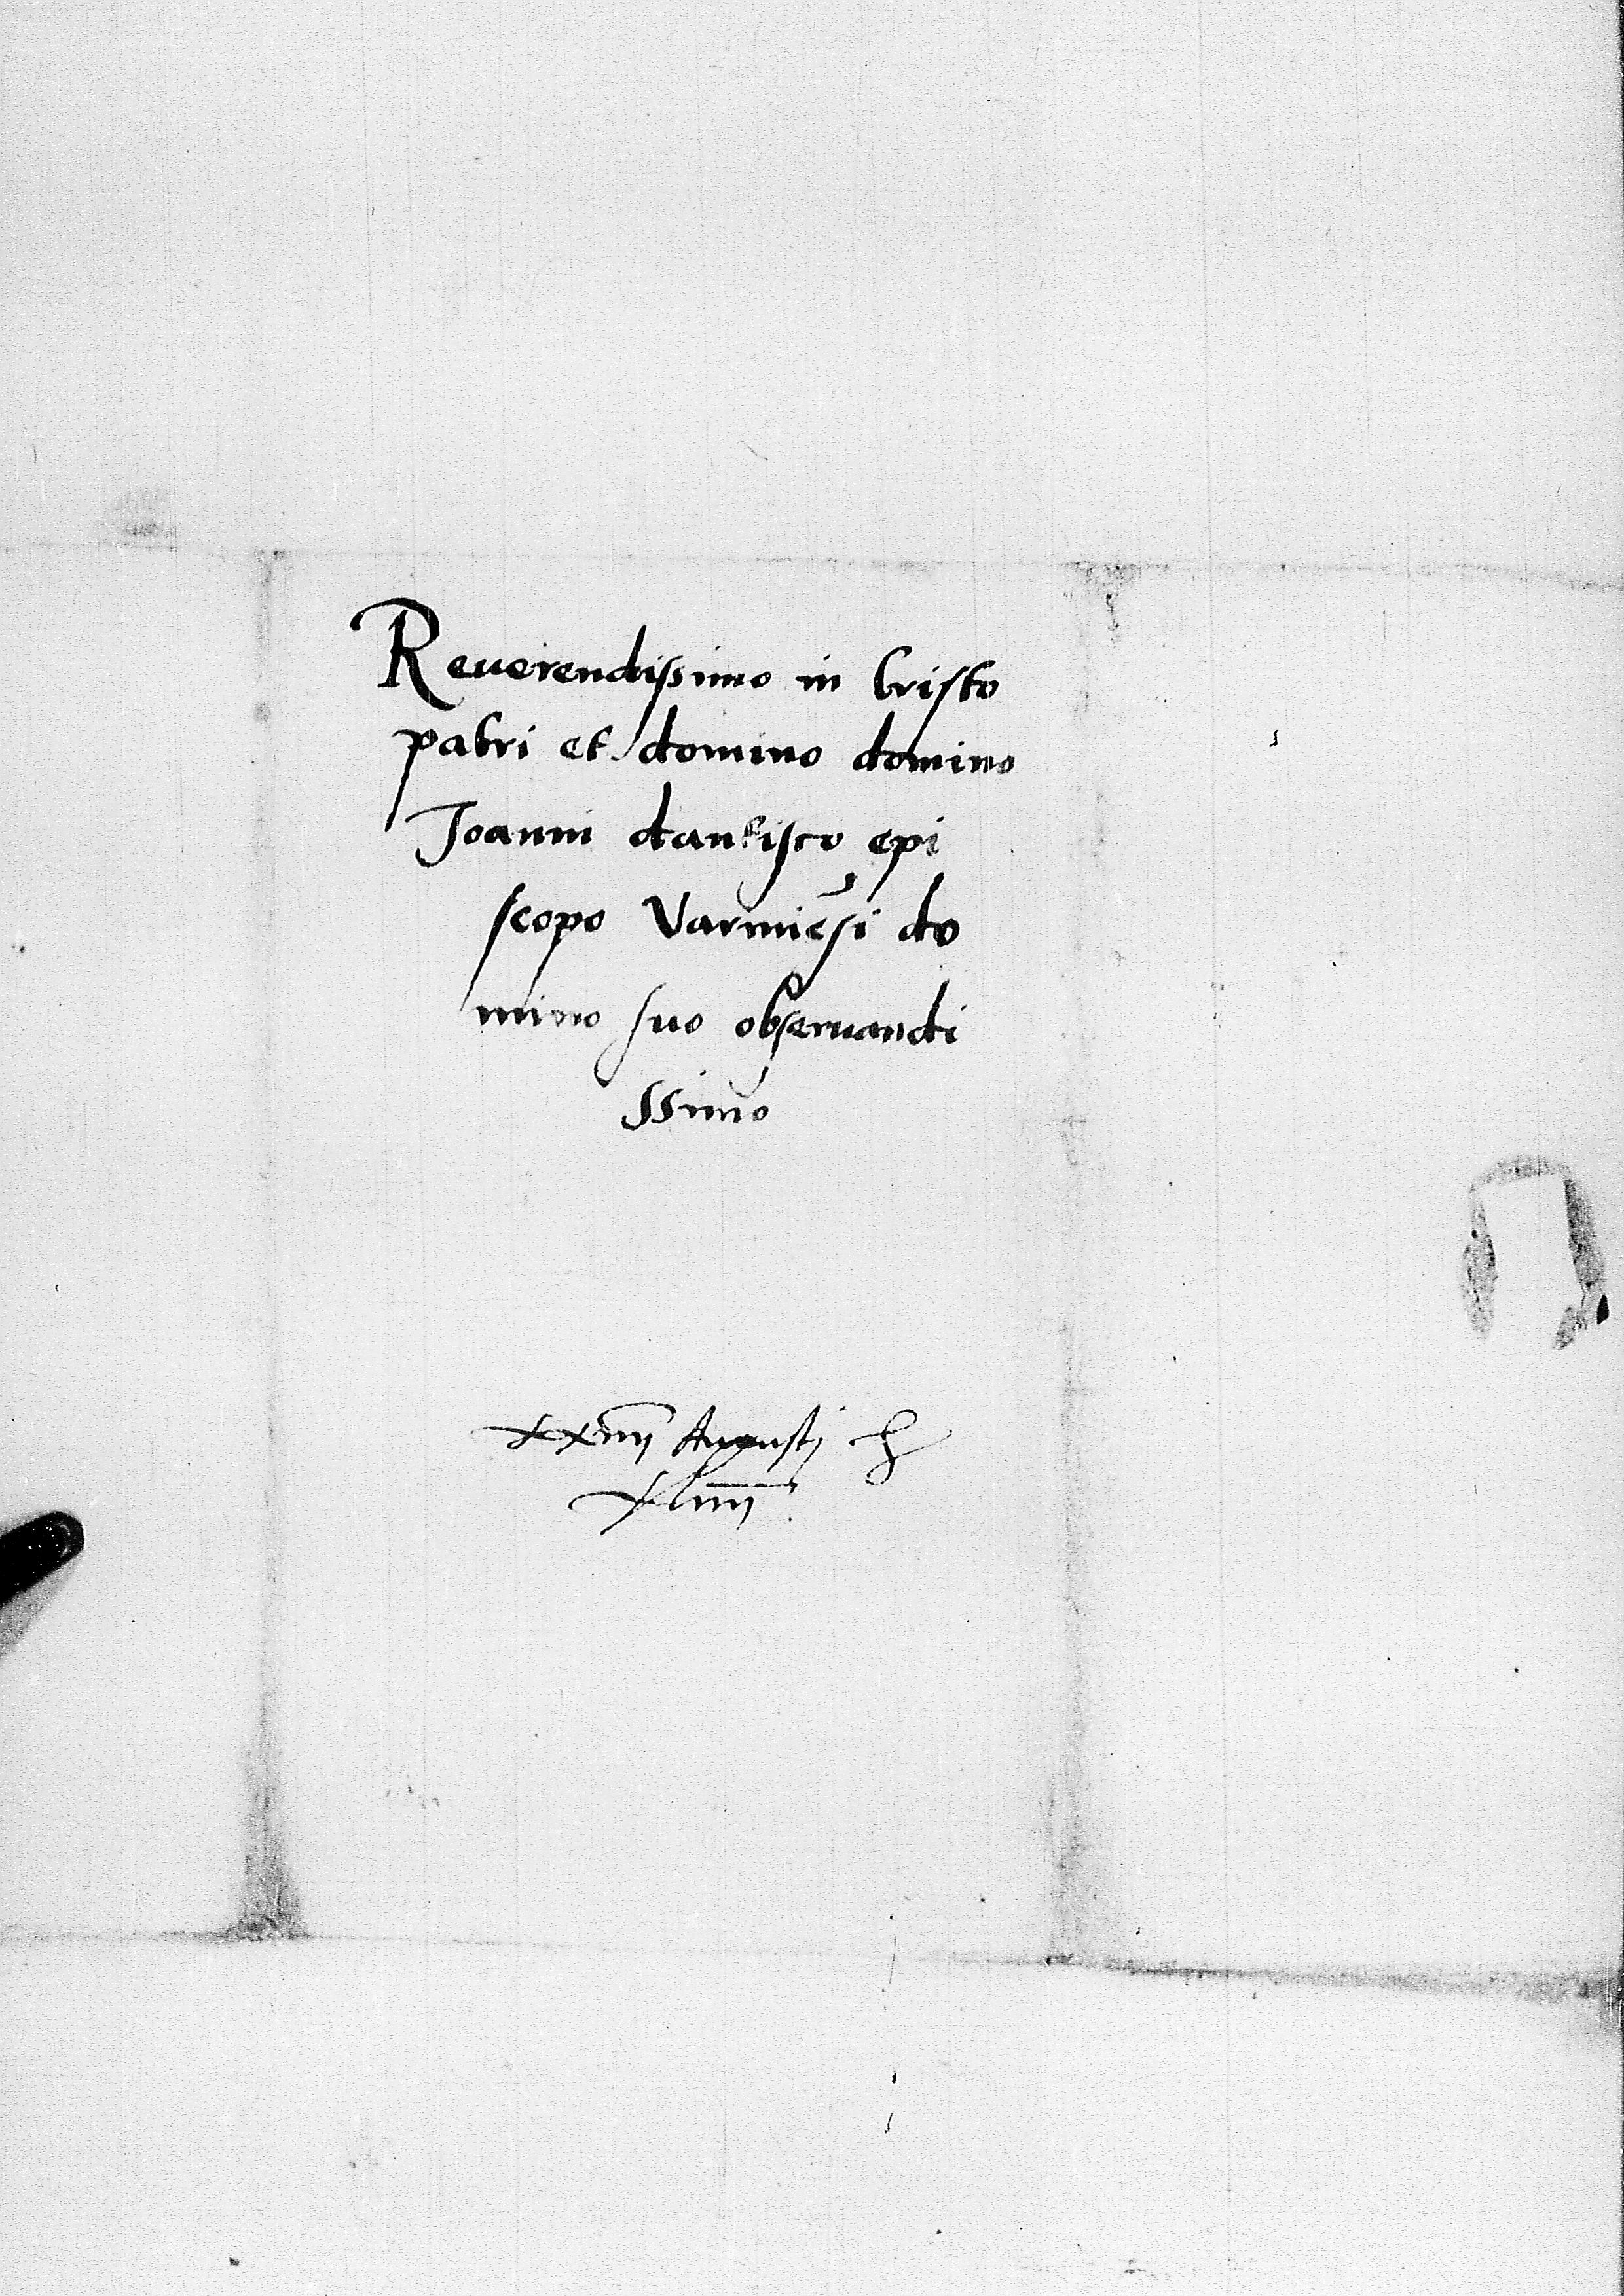 Reuerendissimo in Cristo
patri et domino domino
Joanni dantisco epi
scopo Varmiēsi do
mino suo obseruandi
ssimo
xxiiij Augusti
xliiij